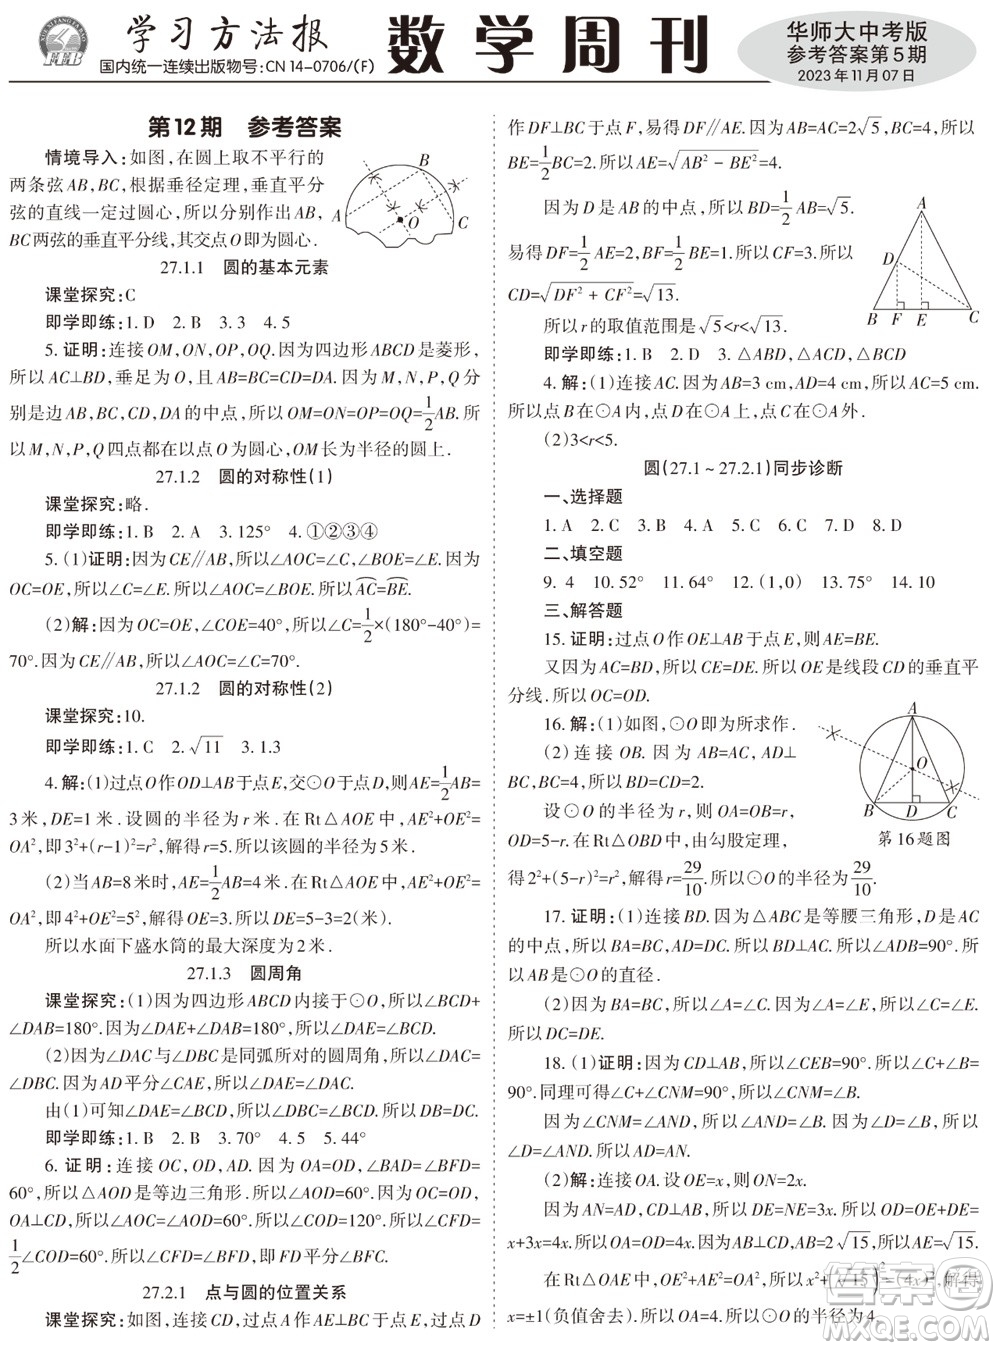 学习方法报
国内统一连续出版物号:CN 14-0706/(F)
数学周刊
华师大中考版
参考答案第5期
2023年11月07日
第12期 参考答案
情境导入:如图,在圆上取不平行的
两条弦AB,BC,根据垂径定理,垂直平分
弦的直线一定过圆心,所以分别作出AB,
BC两弦的垂直平分线,其交点O即为圆心.
A B C O
27.1.1 圆的基本元素
课堂探究:C
即学即练:1. D 2. B 3. 3 4. 5
5. 证明:连接OM,ON,OP,OQ.因为四边形ABCD是菱形,
所以AC⊥BD,垂足为O,且AB=BC=CD=DA.因为M,N,P,Q分
别是边AB,BC,CD,DA的中点,所以OM=ON=OP=OQ=1/2AB.所
以M,N,P,Q四点都在以点O为圆心,OM长为半径的圆上.
27.1.2 圆的对称性(1)
课堂探究:略.
即学即练:1. B 2. A 3. 125° 4. ①②③④
5. (1)证明:因为CE∥AB,所以∠AOC=∠C,∠BOE=∠E.因为
OC=OE,所以∠C=∠E.所以∠AOC=∠BOE.所以AC=BE.
(2)解:因为OC=OE,∠COE=40°,所以∠C=1/2×(180°-40°)=
70°.因为CE∥AB,所以∠AOC=∠C=70°.
27.1.2 圆的对称性(2)
课堂探究:10.
即学即练:1. C 2. √11 3. 1.3
4. 解:(1)过点O作OD⊥AB于点E,交⊙O于点D,则AE=1/2AB=
3米,DE=1米.设圆的半径为r米.在Rt△AOE中,AE²+OE²=
OA²,即3²+(r-1)²=r²,解得r=5.所以该圆的半径为5米.
(2)当AB=8米时,AE=1/2AB=4米.在Rt△AOE中,AE²+OE²=
OA²,即4²+OE²=5²,解得OE=3.所以DE=5-3=2(米).
所以水面下盛水筒的最大深度为2米.
27.1.3 圆周角
课堂探究:(1)因为四边形ABCD内接于⊙O,所以∠BCD+
∠DAB=180°.因为∠DAE+∠DAB=180°,所以∠DAE=∠BCD.
(2)因为∠DAC与∠DBC是同弧所对的圆周角,所以∠DAC=
∠DBC.因为AD平分∠CAE,所以∠DAE=∠DAC.
由(1)可知∠DAE=∠BCD,所以∠DBC=∠BCD.所以DB=DC.
即学即练:1. B 2. B 3. 70° 4. 5 5. 44°
6. 证明:连接OC,OD,AD.因为OA=OD,∠BAD=∠BFD=
60°,所以△AOD是等边三角形.所以∠AOD=60°.因为OC=OD,
OA⊥CD,所以∠AOC=∠AOD=60°.所以∠COD=120°.所以∠CFD=
1/2∠COD=60°.所以∠CFD=∠BFD,即FD平分∠BFC.
27.2.1 点与圆的位置关系
课堂探究:如图,过点A作AE⊥BC于点E,过点D
作DF⊥BC于点F,易得DF∥AE.因为AB=AC=2√5,BC=4,所以
BE=1/2BC=2.所以AE=√(AB²-BE²)=4.
因为D是AB的中点,所以BD=1/2AB=√5.
易得DF=1/2AE=2,BF=1/2BE=1.所以CF=3.所以
CD=√(DF²+CF²)=√13.
所以r的取值范围是√5<r<√13.
A D B F E C
即学即练:1. B 2. D 3. △ABD,△ACD,△BCD
4. 解:(1)连接AC.因为AB=3 cm,AD=4 cm,所以AC=5 cm.
所以点B在⊙A内,点D在⊙A上,点C在⊙A外.
(2)3<r<5.
圆(27.1~27.2.1)同步诊断
一、选择题
1. A 2. C 3. B 4. A 5. C 6. C 7. D 8. D
二、填空题
9. 4 10. 52° 11. 64° 12. (1,0) 13. 58° 14. 10
三、解答题
15. 证明:过点O作OE⊥AB于点E,则AE=BE.
又因为AC=BD,所以CE=DE.所以OE是线段CD的垂直平
分线.所以OC=OD.
16. 解:(1)如图,⊙O即为所求作.
(2)连接OB.因为AB=AC,AD⊥
BC,BC=4,所以BD=CD=2.
设⊙O的半径为r,则OA=OB=r,
OD=5-r.在Rt△OBD中,由勾股定理,
得2²+(5-r)²=r²,解得r=29/10.所以⊙O的半径为29/10.
A O B D C
第16题图
17. 证明:(1)连接BD.因为△ABC是等腰三角形,D是AC
的中点,所以BA=BC,AD=CD.所以BD⊥AC.所以∠ADB=90°.所
以AB是⊙O的直径.
(2)因为BA=BC,所以∠A=∠C.因为∠A=∠E,所以∠C=∠E.
所以DC=DE.
18. (1)证明:因为CD⊥AB,所以∠CEB=90°.所以∠C+∠B=
90°.同理可得∠C+∠CNM=90°,所以∠CNM=∠B.
因为∠CNM=∠AND,所以∠AND=∠B.因为∠D=∠B,所以
∠D=∠AND.所以AD=AN.
(2)解:连接OA.设OE=x,则ON=2x.
因为AN=AD,CD⊥AB,所以DE=NE=3x.所以OD=OE+DE=
x+3x=4x.所以OA=OD=4x.因为CD⊥AB,AB=2√15,所以AE=√15.
在Rt△OAE中,OE²+AE²=OA²,所以x²+(√15)²=(4x)²,解得
x=±1(负值舍去).所以OA=4.所以⊙O的半径为4.
MXQE.COM